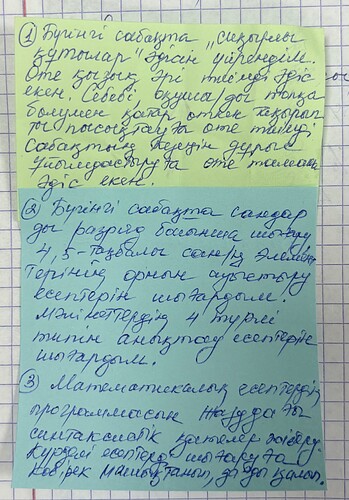 ① Бүгінгі сабақта "сиқырлы
құтылар" әдісін үйрендім.
Өте қызық әрі тиімді әдіс
екен. Себебі, оқушыларды топқа
бөлумен қатар өткен тақырып
ты пысықтауға өте тиімді.
Сабақтың кезеңін дұрыс
ұйымдастыруға өте тамаша
әдіс екен.
② Бүгінгі сабақта сандар
ды разряд бойынша шығару
4, 5-таңбалы санның элемент
терінің орнын ауыстыру
есептерін шығардым.
Мәліметтердің 4 түрлі
типін анықтау есептерін
шығардым.
③ Математикалық есептердің
программасын жазудағы
синтаксистік қателер жіберу.
Күрделі есептерді шығаруға
көбірек машықтанып,